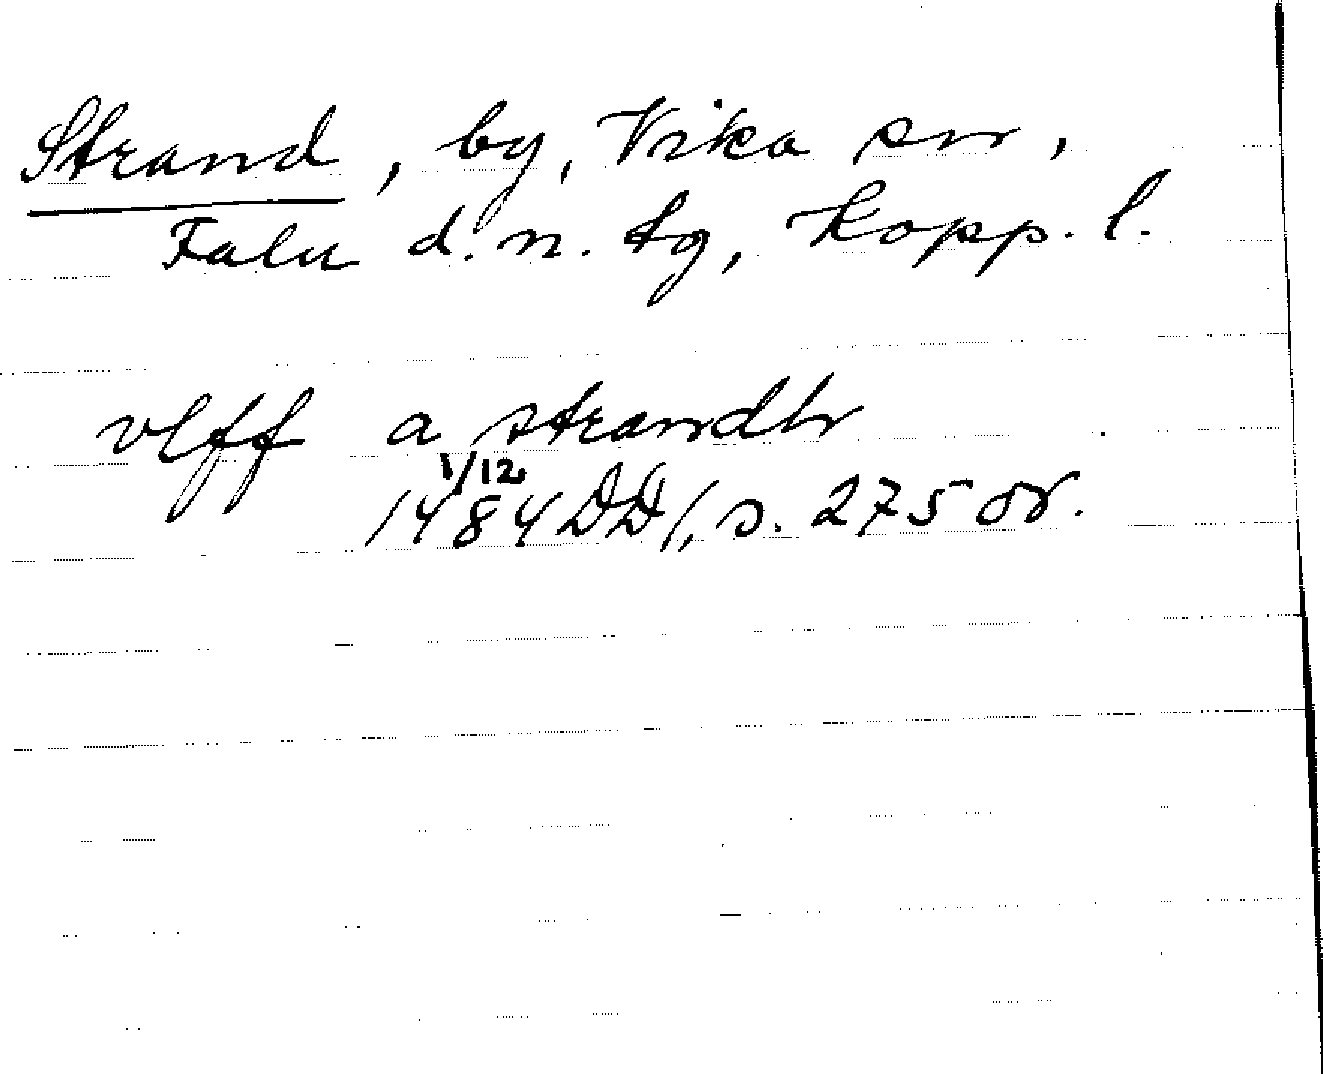 Strand, by, Vika sn,
Falu d.n. tg, Kopp. l.
vlff a strandh
1/12
1484 DD 1, s. 275 or.